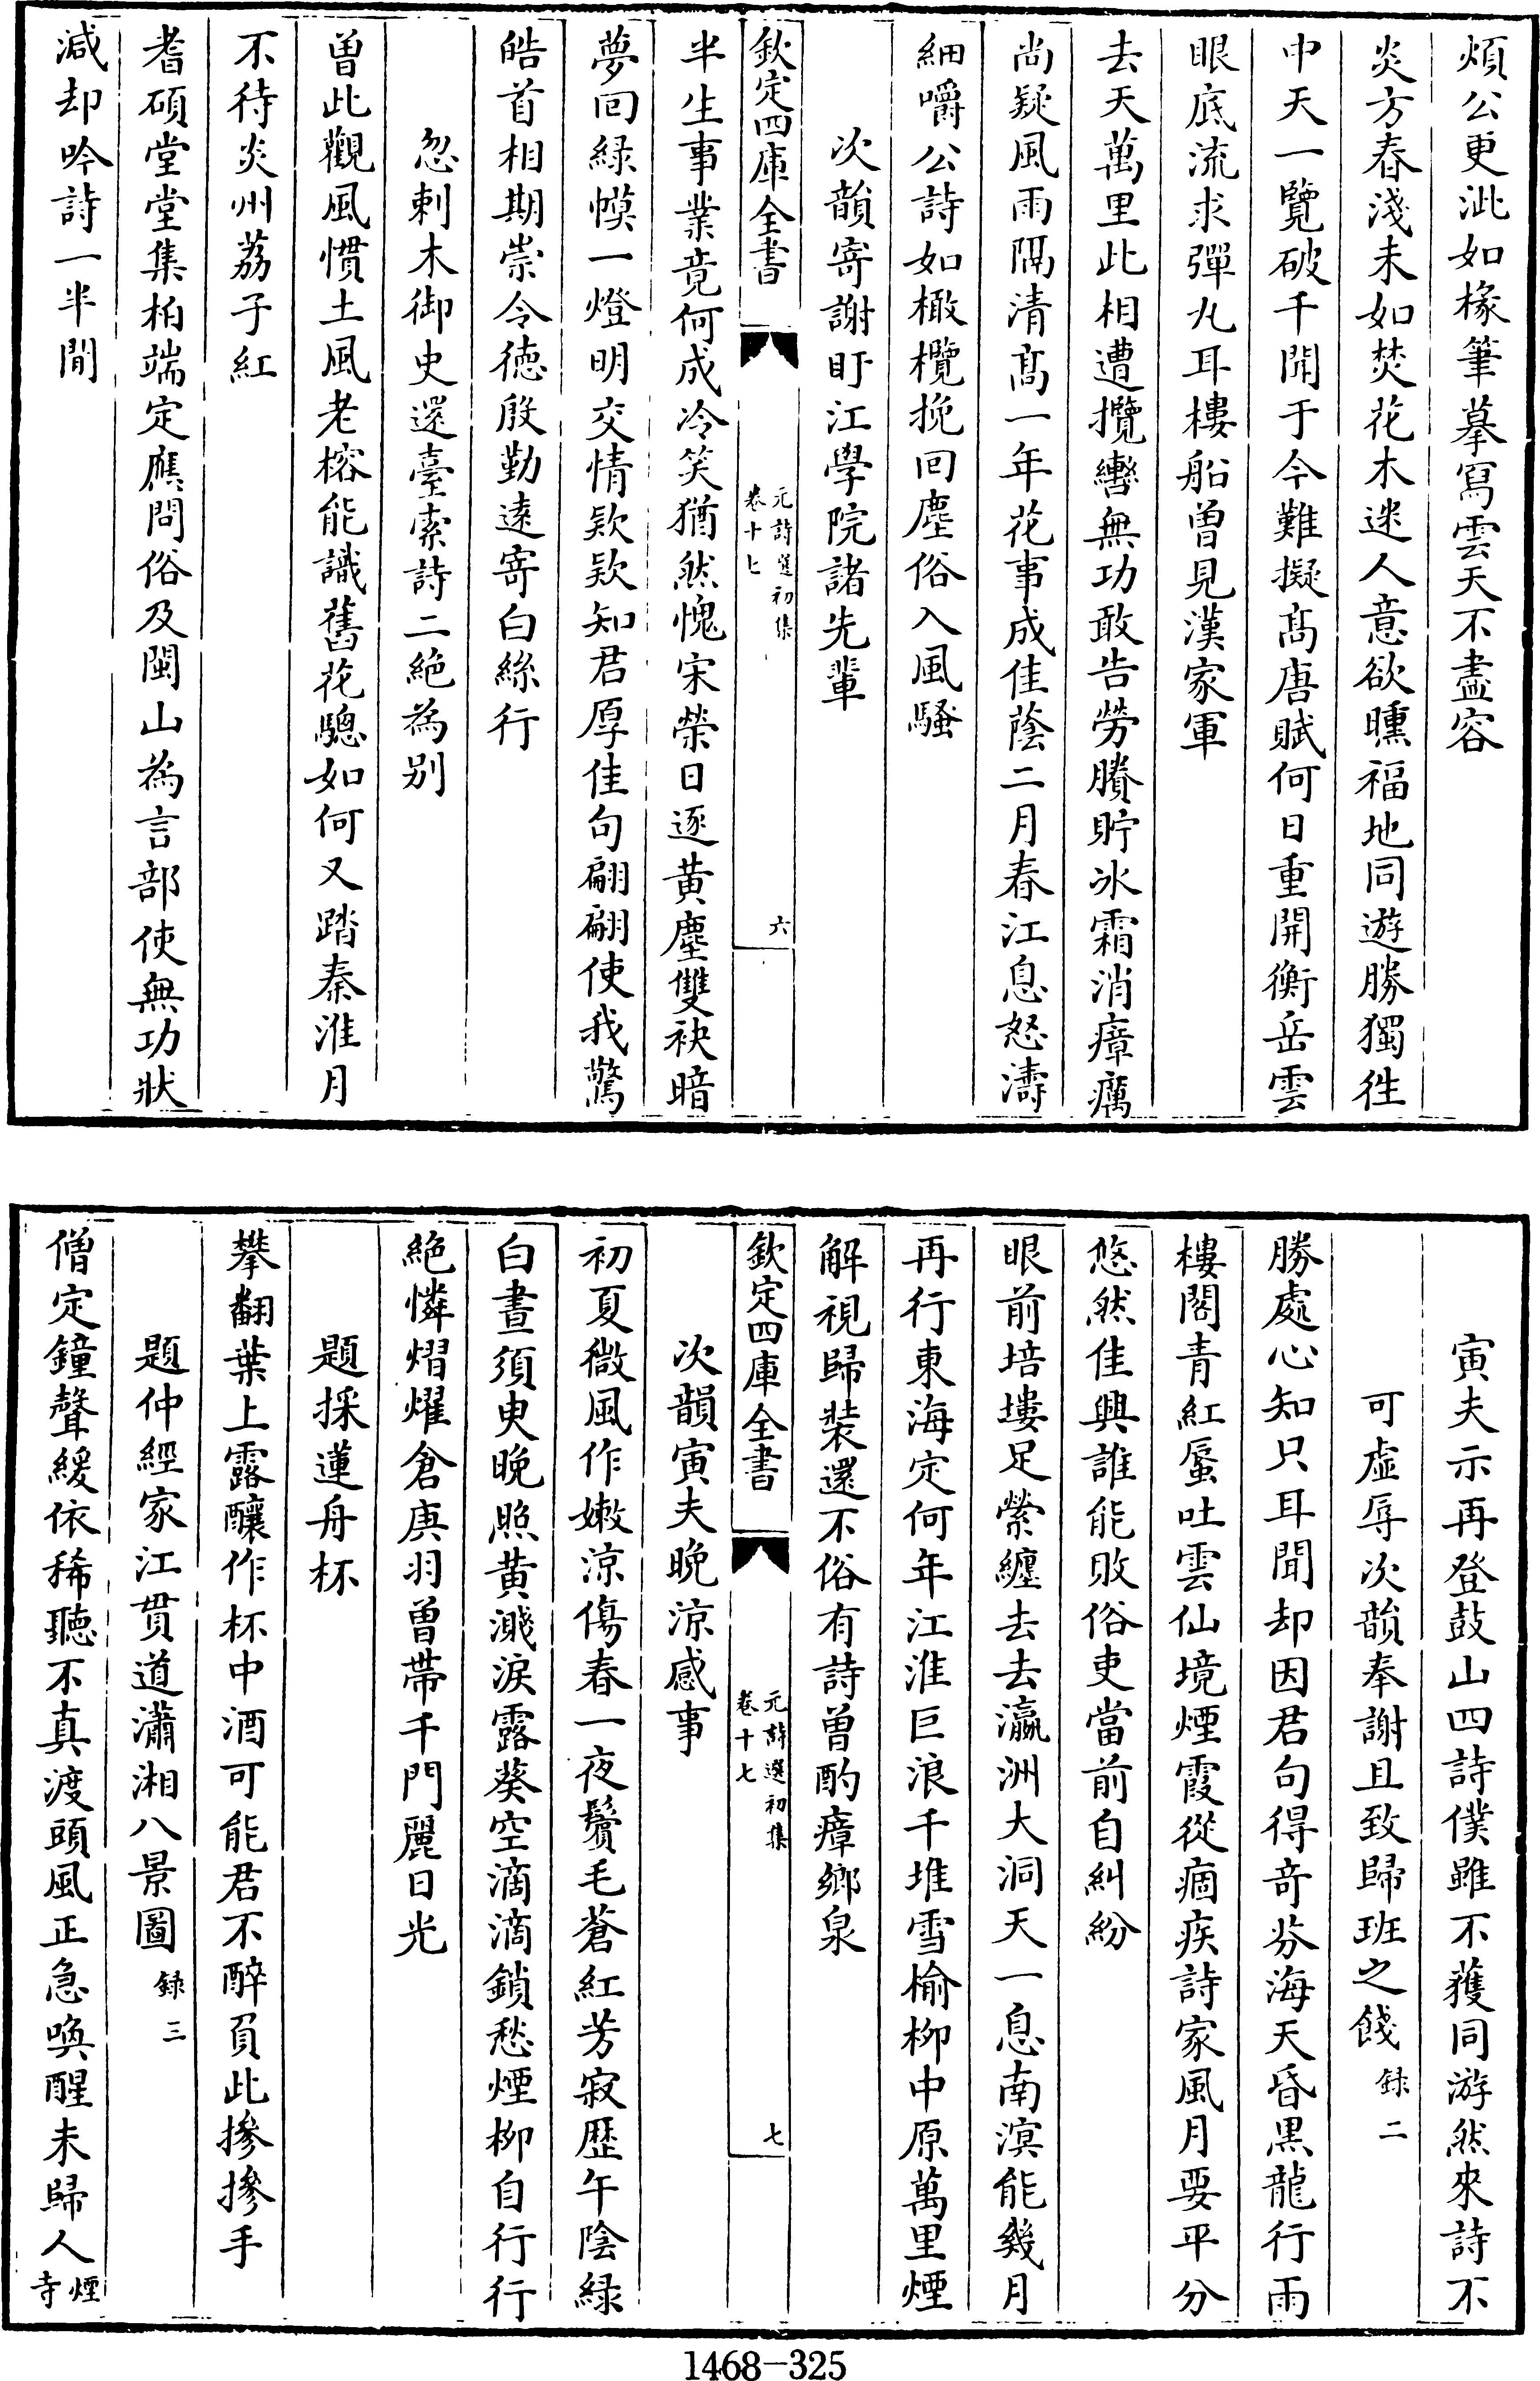 煩公更泚如椽筆摹寫雲天不盡容
炎方春淺未如焚花木迷人意欲曛福地同遊勝獨徃
中天一覽破千聞于今難擬髙唐賦何日重開衡岳雲
眼底流求彈丸耳樓船曽見漢家軍
去天萬里此相遭攬轡無功敢告勞賸貯冰霜消瘴癘
尚疑風雨隔清髙一年花事成佳蔭二月春江息怒濤
細嚼公詩如橄欖挽回塵俗入風騷
次韻寄謝盱江學院諸先輩
欽定四庫全書
元詩選初集
卷十七
六
半生事業竟何成冷笑猶然愧宋榮日逐黄塵雙袂暗
夢回緑幙一燈明交情欵欵知君厚佳句翩翩使我驚
皓首相期崇令德殷勤遠寄白絲行
忽剌木御史還臺索詩二絶為别
曽此觀風慣土風老榕能識舊花驄如何又踏秦淮月
不待炎州荔子紅
耆碩堂堂集柏端定應問俗及閩山為言部使無功狀
減却吟詩一半閒
寅夫示再登鼓山四詩僕雖不獲同游然來詩不
可虚辱次韻奉謝且致歸班之餞録二
勝處心知只耳聞却因君句得竒芬海天昏黒龍行雨
樓閣青紅蜃吐雲仙境煙霞從痼疾詩家風月要平分
悠然佳興誰能敗俗吏當前自糾紛
眼前培塿足縈纏去去瀛洲大洞天一息南溟能幾月
再行東海定何年江淮巨浪千堆雪榆柳中原萬里煙
解視歸裝還不俗有詩曽酌瘴鄉泉
欽定四庫全書
元詩選初集
卷十七
七
次韻寅夫晩涼感事
初夏微風作嫩涼傷春一夜鬢毛蒼紅芳寂歴午陰緑
白晝須臾晩照黄濺淚露葵空滴滴鎖愁煙柳自行行
絶憐熠燿倉庚羽曽帶千門麗日光
題採蓮舟杯
攀翻葉上露釀作杯中酒可能君不醉負此摻摻手
題仲經家江貫道瀟湘八景圖録三
僧定鐘聲緩依稀聽不真渡頭風正急喚醒未歸人煙寺
1468-325